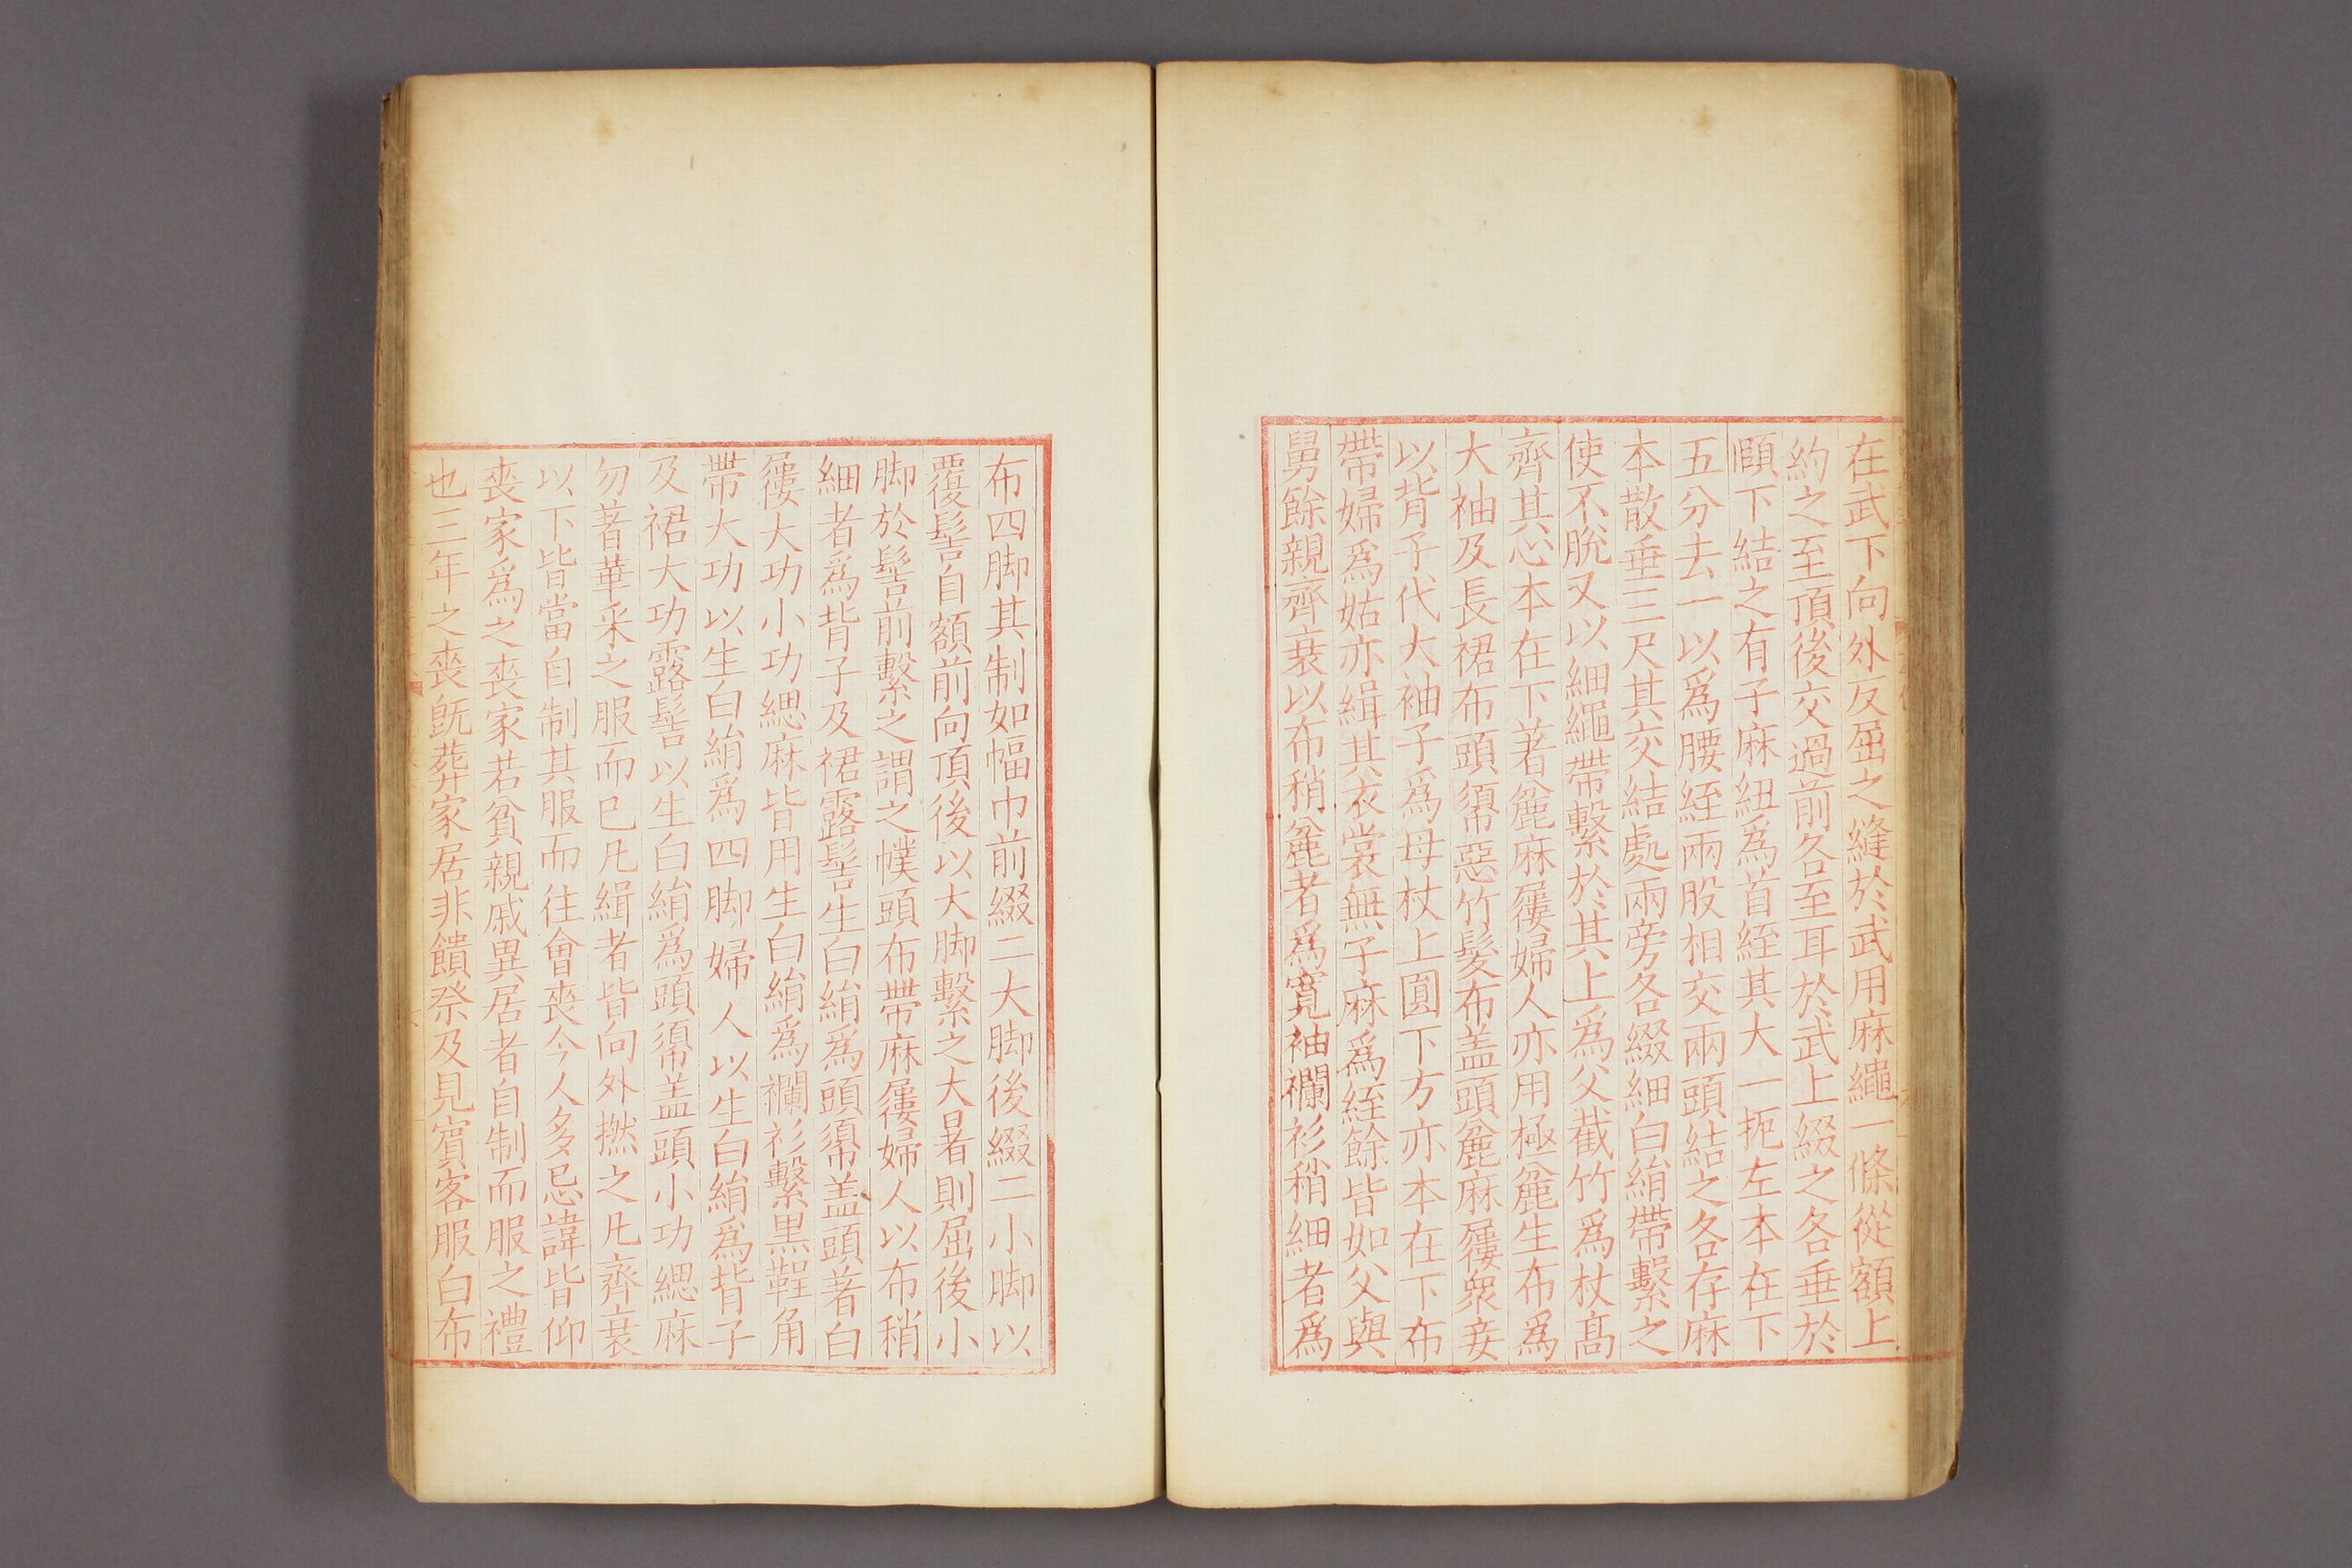 在武下向外反屈之縫於武用麻繩一條從額上
約之至頂後交過前各至耳於武上綴之各垂於
頤下結之有子麻紐爲首絰其大一扼左本在下
五分去一以爲腰絰兩股相交兩頭結之各存麻
本散垂三尺其交結處兩旁各綴細白絹帶繫之
使不脫又以細繩帶繫於其上爲父截竹爲杖高
齊其心本在下著麄麻屨婦人亦用極麄生布爲
大袖及長裙布頭㡏惡竹髮布盖頭麄麻屨衆妾
以背子代大袖子爲母杖上圓下方亦本在下布
帶婦爲姑亦緝其衣裳無子麻爲絰餘皆如父與
舅餘親齊衰以布稍麄者爲寬袖襴衫稍細者爲
布四脚其制如幅巾前綴二大脚後綴二小脚以
覆髻自額前向頂後以大脚繫之大暑則屈後小
脚於髻前繫之謂之幞頭布帶麻屨婦人以布稍
細者爲背子及裙露髻生白絹爲頭㡏盖頭著白
屨大功小功緦麻皆用生白絹爲襴衫繫黑鞓角
帶大功以生白絹爲四脚婦人以生白絹爲背子
及裙大功露髻以生白絹爲頭㡏盖頭小功緦麻
勿著華采之服而已凡緝者皆向外撚之凡齊衰
以下皆當自制其服而往會喪今人多忌諱皆仰
喪家爲之喪家若貧親戚異居者自制而服之禮
也三年之喪旣葬家居非饋祭及見賓客服白布